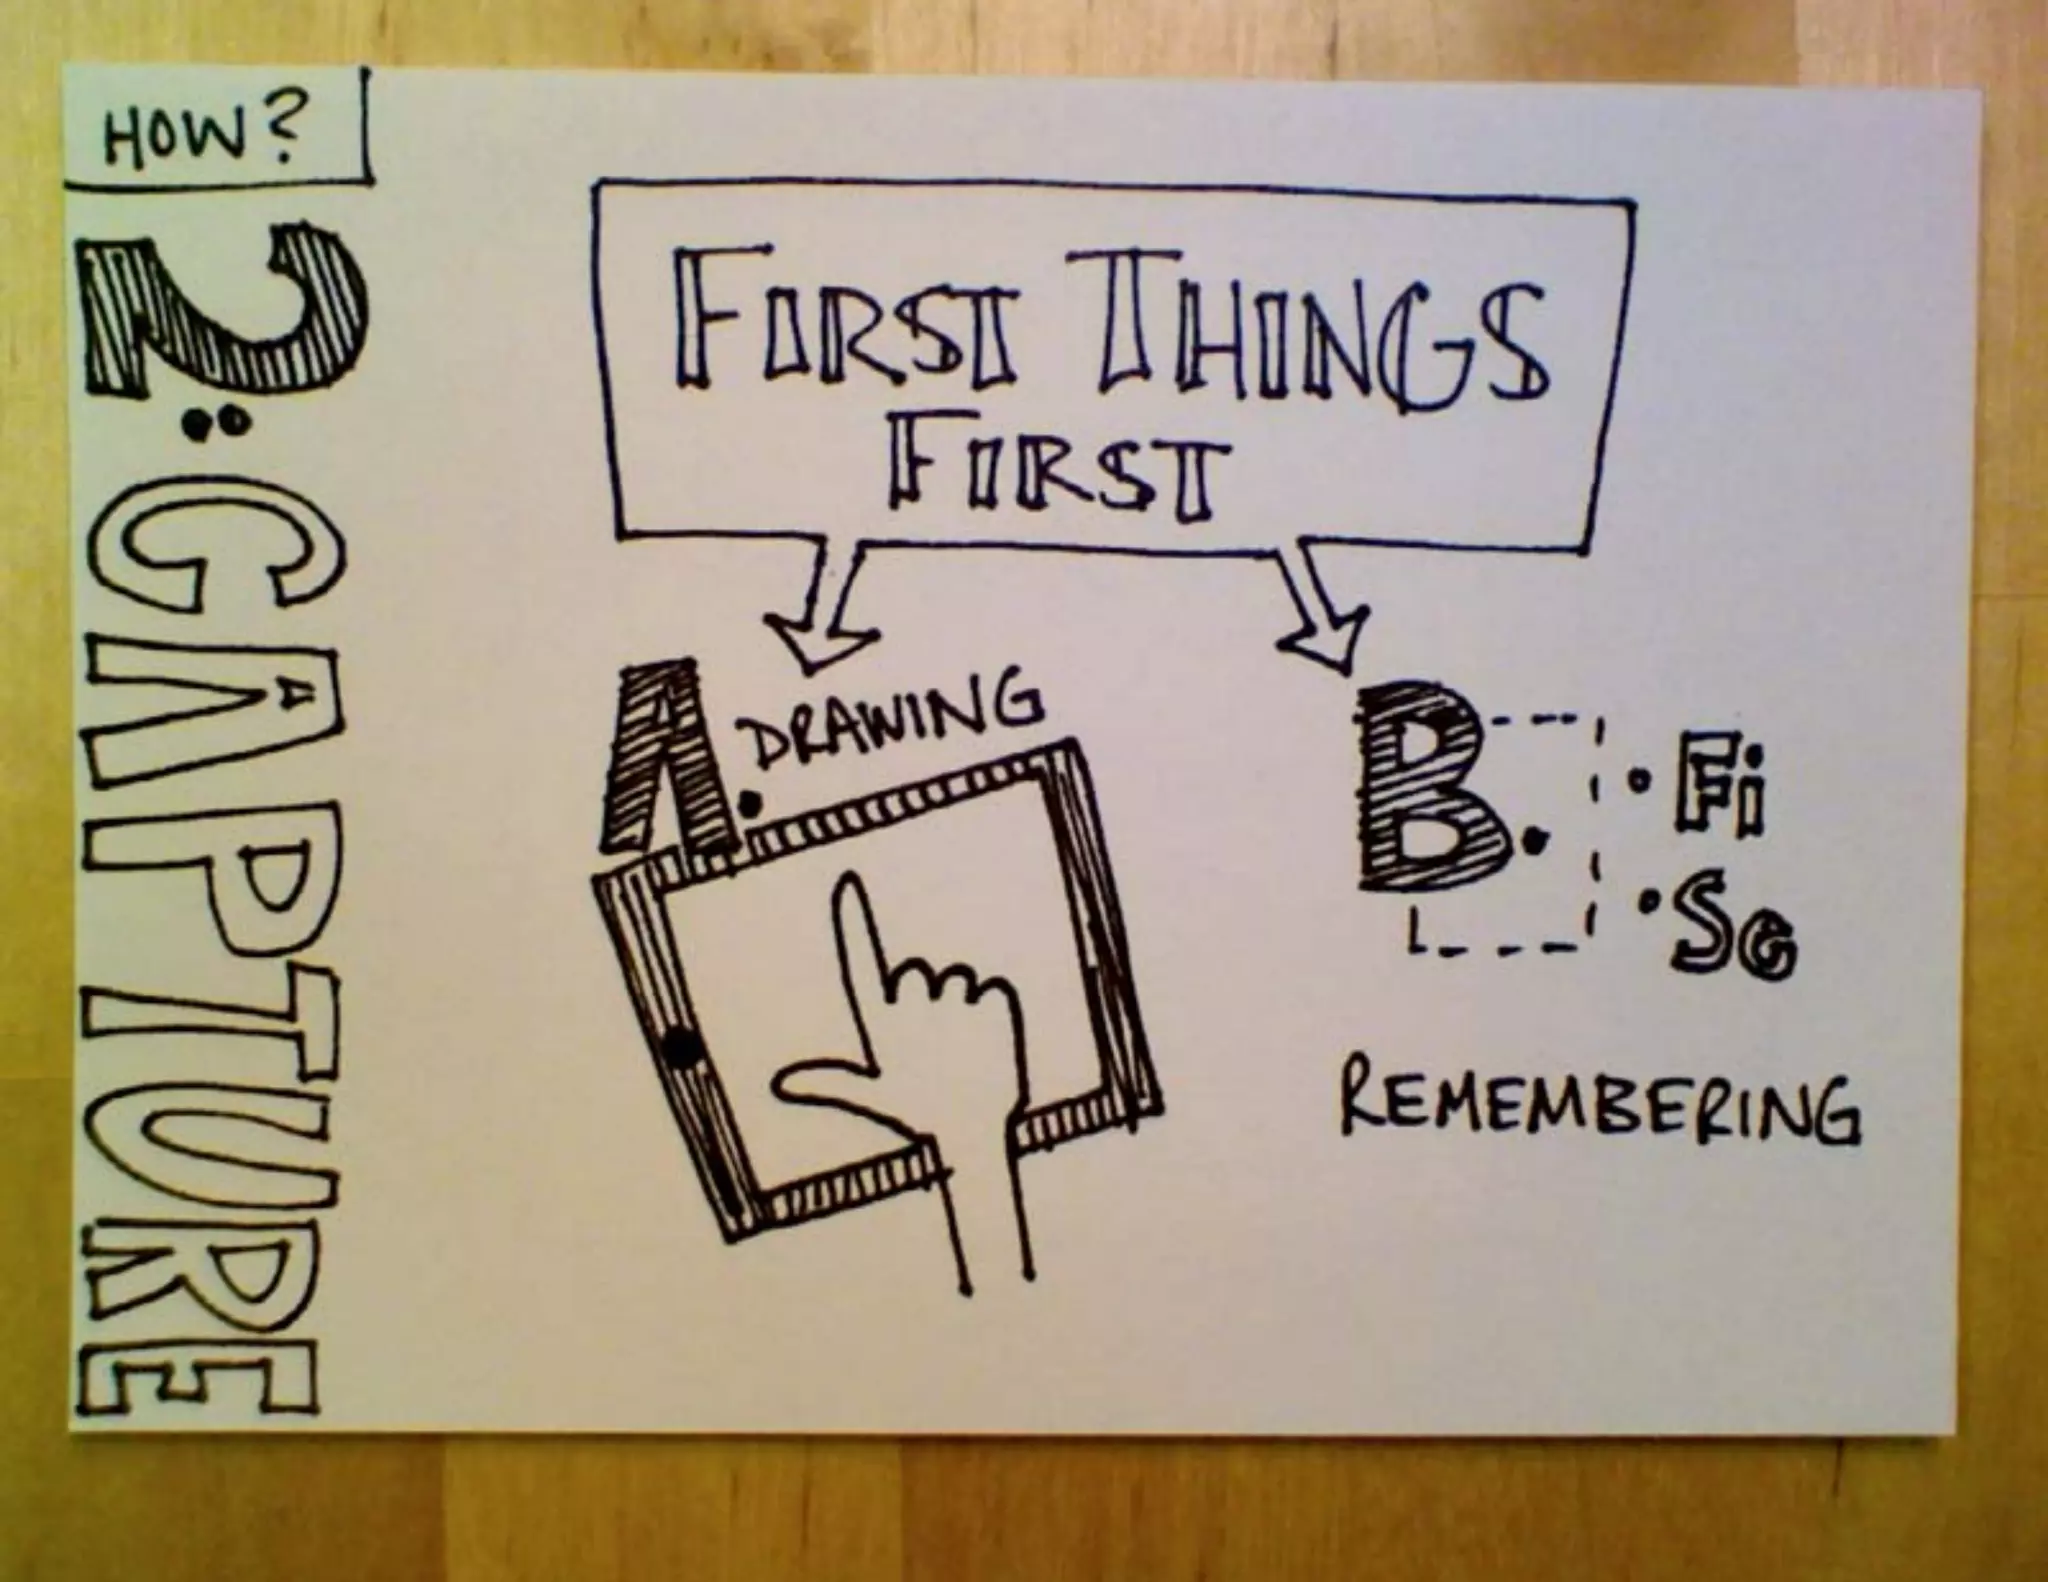 HOW?
2: CAPTURE
FIRST THINGS
FIRST
A. DRAWING
B.
• Fi
• Se
REMEMBERING